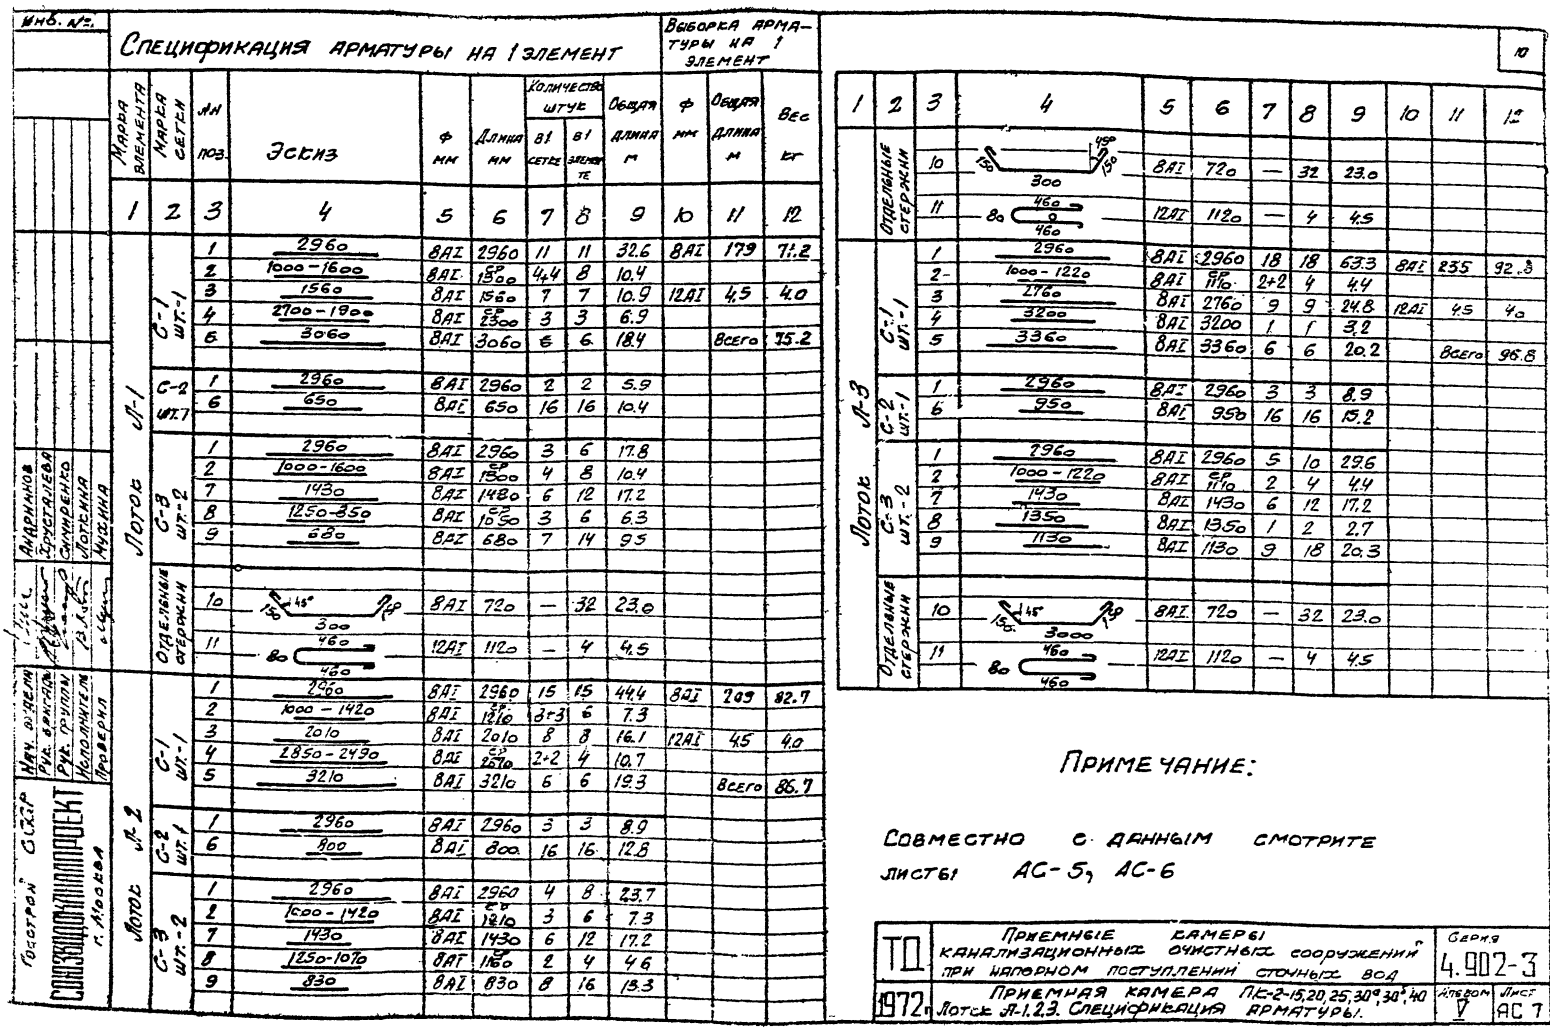 Инв. №:
Спецификация арматуры на 1 элемент
Выборка арма-
туры на 1
элемент
10
Марка элемента | Марка сетки | №№ поз. | Эскиз | Ф мм | Длина мм | Количество штук: в 1 сетке | в 1 элементе | Общая длина м | Ф мм | Общая длина м | Вес кг
1 2 3 4 5 6 7 8 9 10 11 12
Лоток Л-1
С-1 шт.-1
1 2960 8АI 2960 11 11 32.6 8АI 179 71.2
2 1000-1600 8АI ср 1300 4+4 8 10.4
3 1560 8АI 1560 7 7 10.9 12АI 4,5 4.0
4 2700-1900 8АI ср 2300 3 3 6.9
5 3060 8АI 3060 6 6 18.4 Всего 75.2
С-2 шт.1
1 2960 8АI 2960 2 2 5.9
6 650 8АI 650 16 16 10.4
С-3 шт.-2
1 2960 8АI 2960 3 6 17.8
2 1000-1600 8АI ср 1300 4 8 10.4
7 1430 8АI 1430 6 12 17.2
8 1250-850 8АI ср 1050 3 6 6.3
9 680 8АI 680 7 14 9.5
Отдельные стержни
10 150 45° 300 150 8АI 720 — 32 23.0
11 460 80 460 12АI 1120 — 4 4,5
Лоток Л-2
С-1 шт.-1
1 2960 8АI 2960 15 15 44.4 8АI 209 82.7
2 1000-1420 8АI ср 1210 3+3 6 7.3
3 2010 8АI 2010 8 8 16.1 12АI 4.5 4.0
4 2850-2490 8АI ср 2670 2+2 4 10.7
5 3210 8АI 3210 6 6 19.3 Всего 86.7
С-2 шт.1
1 2960 8АI 2960 3 3 8.9
6 800 8АI 800 16 16 12.8
С-3 шт.-2
1 2960 8АI 2960 4 8 23.7
2 1000-1420 8АI ср 1210 3 6 7.3
7 1430 8АI 1430 6 12 17.2
8 1250-1070 8АI 1160 2 4 4.6
9 830 8АI 830 8 16 13.3
1 2 3 4 5 6 7 8 9 10 11 12
Отдельные стержни
10 150 45° 150 300 8АI 720 — 32 23.0
11 460 80 460 12АI 1120 — 4 4.5
Лоток Л-3
С-1 шт-1
1 2960 8АI 2960 18 18 53.3 8АI 235 92.8
2 1000-1220 8АI ср 1110 2+2 4 4.4
3 2760 8АI 2760 9 9 24.8 12АI 4.5 4.0
4 3200 8АI 3200 1 1 3.2
5 3360 8АI 3360 6 6 20.2 Всего 96.8
С-2 шт.-1
1 2960 8АI 2960 3 3 8.9
6 950 8АI 950 16 16 15.2
С-3 шт.-2
1 2960 8АI 2960 5 10 29.6
2 1000-1220 8АI ср 1110 2 4 4.4
7 1430 8АI 1430 6 12 17.2
8 1350 8АI 1350 1 2 2.7
9 1130 8АI 1130 9 18 20.3
Отдельные стержни
10 150 45° 3000 8АI 720 — 32 23.0
11 460 80 460 12АI 1120 — 4 4.5
Примечание:
Совместно с данным смотрите
листы АС-5, АС-6
Нач. отдела Андрианов
Рук. бригады Хрусталева
Рук. группы Смиренко
Исполнитель Лоткина
Проверил Мухина
Госстрой СССР
СОЮЗВОДОКАНАЛПРОЕКТ
г. Москва
ТД
Приемные камеры
канализационных очистных сооружений
при напорном поступлении сточных вод
Серия
4.902-3
1972г.
Приемная камера ПК-2-15,20,25,30а,30б,40
Лоток Л-1.2.3. Спецификация арматуры.
Альбом V
Лист АС 7